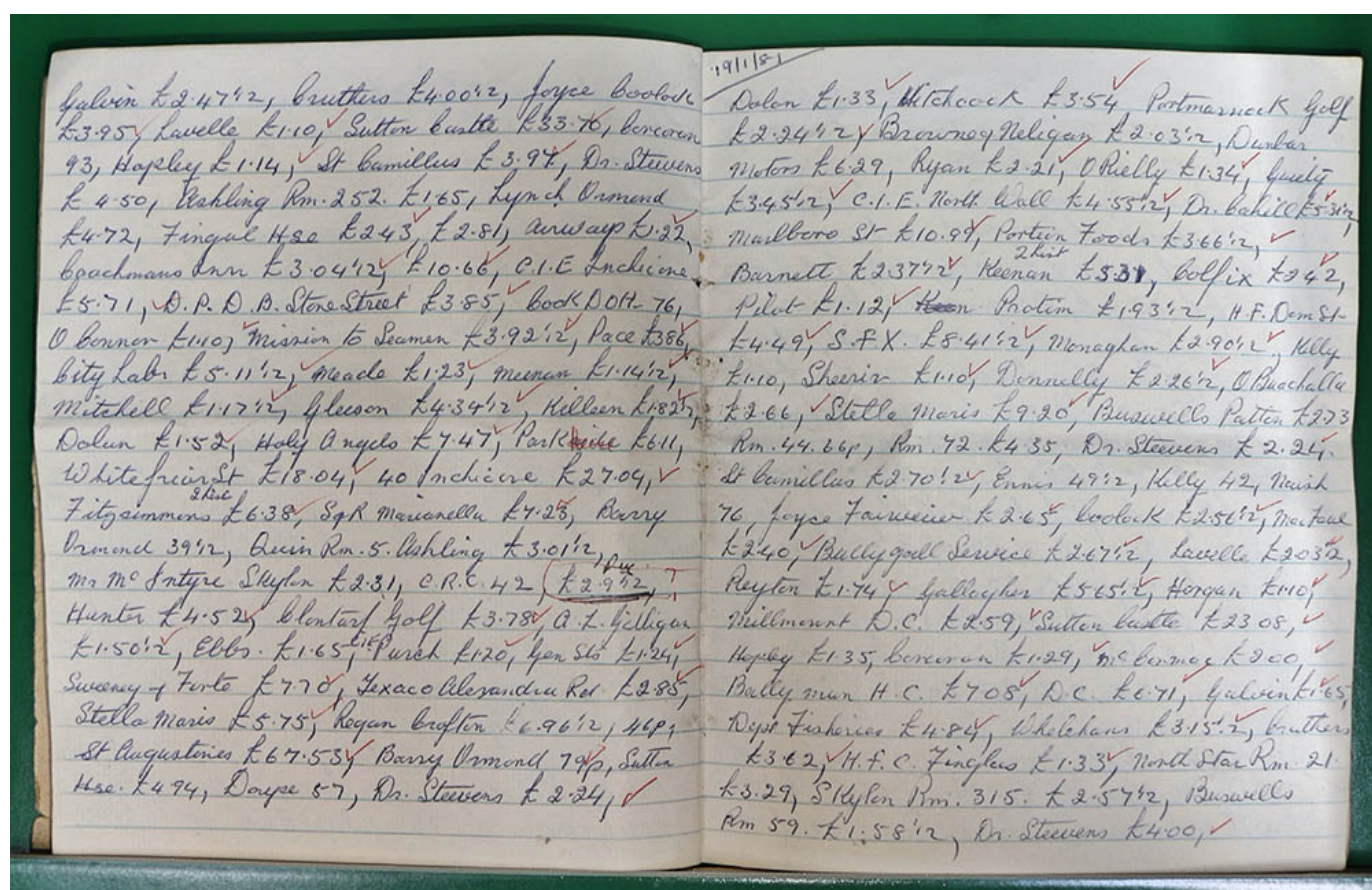 Galvin £2.47½, Cruthers £4.00½, Joyce Coolock
£3.95, Lavelle £1.10, Sutton Castle £33.70, Corcoran
93, Hapley £1.14, St Camillus £3.97, Dr. Steevens
£4.50, Ashling Rm. 252. £1.65, Lynch Ormond
£4.72, Fingal Hse £2.43, £2.81, Airways £1.22,
Coachmans Inn £3.04½, £10.66, C.I.E Inchicore
£5.71, D.P.D.B. Store Street £3.85, Cook DOH- 76,
O Connor £1.10, Mission to Seamen £3.92½, Pace £3.86,
City Labs £5.11½, Meade £1.23, Meenan £1.14½,
Mitchell £1.17½, Gleeson £4.34½, Killeen £1.82½,
Dolan £1.52, Holy Angels £7.47, Park £6.11,
Whitefriar St £18.04, 40 Inchicore £27.04,
Fitzsimmons 2 list £6.38, SqR Marianella £7.23, Barry
Ormond 39½, Quin Rm. 5. Ashling £3.01½,
Mr Mc Intyre Skylon £2.31, C.R.C. 42, £2.9½, ?
Hunter £4.52, Clontarf Golf £3.78, A.L. Gilligan
£1.50½, Ebbs. £1.65, Purch £1.20, Gen Sts £1.24,
Sweeney & Forte £7.70, Texaco Alexandra Rd £2.85,
Stella Maris £5.75, Rogan Crofton £6.96½, 46p,
St Augustines £67.53, Barry Ormond 79p, Sutton
Hse. £4.94, 57, Dr. Steevens £2.24,
19/1/81
Dolan £1.33, Hitchcock £3.54 Portmarnock Golf
£2.24½, Browneq Neligan £2.03½, Dunbar
Motors £6.29, Ryan £2.21, O Rielly £1.34, Quilty
£3.45½, C.I.E. North Wall £4.55½, Dr. Cahill £5.31½,
Marlboro St £10.99, Portion Foods £3.66½,
Barnett £2.37½, Keenan 2 list £5.31, Colfix £2.4½,
Pilot £1.12, Protim £1.93½, H.F. Dom St
£4.49, S.F.X. £8.41½, Monaghan £2.90½, Kelly
£1.10, Sheerin £1.10, Donnelly £2.26½, O Buachalla
£2.66, Stella Maris £9.20, Buswells Patton £2.23
Rm. 44. 66p, Rm. 72. £4.35, Dr. Steevens £2.24.
St Camillus £2.70½, Ennis 49½, Kelly 42, Naish
76, Joyce Fairview £2.65, Coolock £2.56½,
£2.40, Ballygall Service £2.67½, Lavelle £2.03½,
Peyton £1.74, Gallagher £5.65½, Horgan £1.10,
Millmount D.C. £2.59, Sutton Castle £23.08,
Hapley £1.35, Corcoran £1.29, Mc Cormac £2.00,
Bally mun H.C. £7.08, D.C. £6.71, Galvin £1.65,
Dept Fisheries £4.84, Whelehans £3.15½, Cruthers
£3.62, H.F.C. Finglas £1.33, North Star Rm. 21.
£3.29, Skylon Rm. 315. £2.57½, Buswells
Rm 59. £1.58½, Dr. Steevens £4.00,